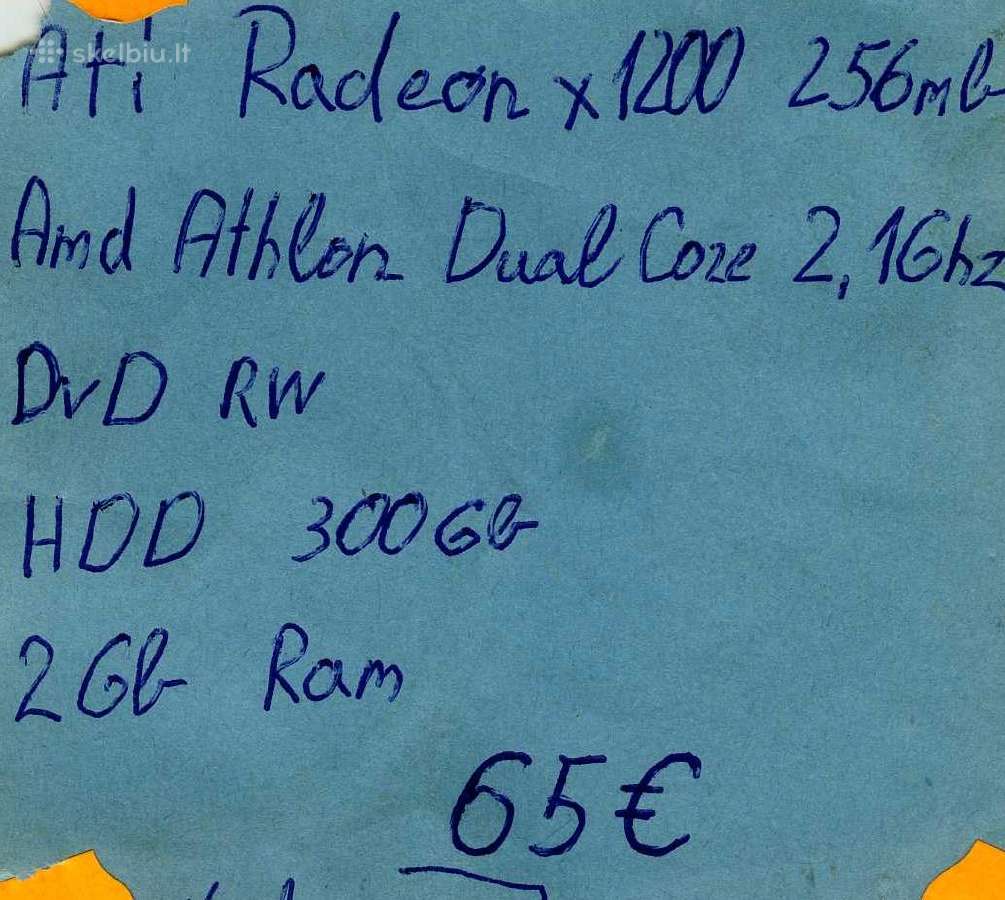 skelbiu.lt
Ati Radeon x1200 256mb
Amd Athlon Dual Core 2,1Ghz
DvD RW
HDD 300Gb
2Gb Ram
65€